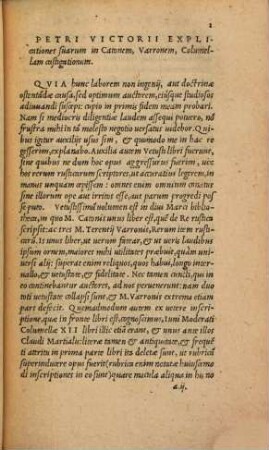 1
PETRI VICTORII EXPLI
cationes suarum in Catonem, Varronem, Columel
lam castigationum.
QVIA hunc laborem non ingenij, aut doctrinæ
ostentãdæ causa, sed optimum auctorem, eiusque studiosos
adiuuandi suscepi: cupio in primis fidem meam probari.
Nam si mediocris diligentiæ laudem assequi potuero, nõ
frustra mihi in tã molesto negotio versatus uidebor. Qui
bus igitur auxilijs usus sim, & quomodo me in hac re
gesserim, explanabo. Auxilia autem Vetusti libri fuerunt,
sine quibus ne dum hoc opus aggressurus fuerim, non
enim ignoro quid præstare possum, ut accuratius legerem, in
manus unquam cepissem: omnes enim omnium conatus
sine illorum ope aut irriti essent, aut parum progredi pos
se puto. Vetustissimũ uolumen est in diui Marci bibbo-
theca, in quo M. Catonis unus liber est, qui de Re rustica
scripsit: ac tres M. Terentij Varronis, Rerum item rusti
carũ. Is unus liber, ut uerum fatear, & ut ueris laudibus
ipsum ornem, maiores mihi utilitates præbuit, quàm uni-
uersi alij: superat enim reliquos, quos habeo, longo
interuallo, & uetustate, & fidelitate. Nec tamen cuncti, qui in
eo continebantur auctores, ad nos peruenerunt: nam duo
toti uetustate collapsi sunt, & M. Varronis extrema etiam
pars defecit. Quemadmodum autem ex uetere inscri
ptione, quæ in fronte libri est, cognoscimus, Iuni Moderati
Columellæ XII libri illic etiã erant, & unus ante illos
Claudi Martialis: literæ tamen & antiquitate, & freque
ti attritu in prima parte libri ita deletæ sunt, ut rubricã
superinducere opus fuerit (rubrica enim notatæ huiusmo
di inscriptiones in eo sunt) quare mutila aliqua in his no
a.ij.